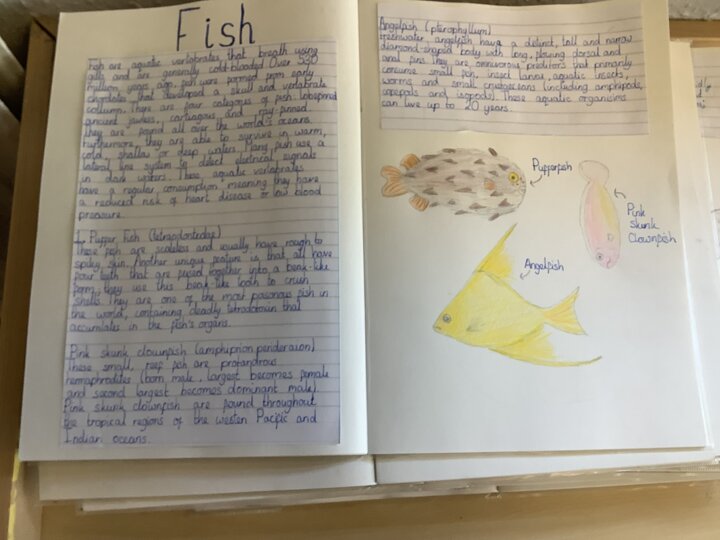 Fish
Fish are aquatic vertebrates that breath using
gills and are generally cold-blooded. Over 530
million years ago, fish were formed from early
chordates that developed a skull and vertebrate
collumn. There are four categories of fish: lobefinned,
ancient jawless, cartilagous and ray-finned.
They are found all over the world's oceans.
Furthermore, they are able to survive in warm,
cold, shallow or deep waters. Many fish use a
lateral line system to detect electrical signals
in dark waters. These aquatic vertebrates
have a regular consumption meaning they have
a reduced risk of heart disease or low blood
pressure.
1. Puffer fish (tetraodontidae)
These fish are scaleless and usually have rough to
spikey skin. Another unique feature is that all have
four teeth that are fused together into a beak-like
form, they use this beak-like tooth to crush
shells. They are one of the most poisonous fish in
the world, containing deadly tetrodotoxin that
accumlates in the fish's organs.
Pink skunk clownfish (amphiprion perideraion)
These small, reef fish are protandrous
hermaphrodites (born male, largest becomes female
and second largest becomes dominant male).
Pink skunk clownfish are found throughout
the tropical regions of the westen Pacific and
Indian oceans.
Angelfish (pterophyllum)
freshwater angelfish have a distinct, tall and narrow
diamond-shaped body with long, flowing dorsal and
anal fins. They are omnivorous preditors that primarily
consume small fish, insect larvae, aquatic insects,
worms and small crustaceans (including amphipods,
copepods and isopods). These aquatic organisms
can live up to 20 years.
Pufferfish
Pink
skunk
Clownfish
Angelfish